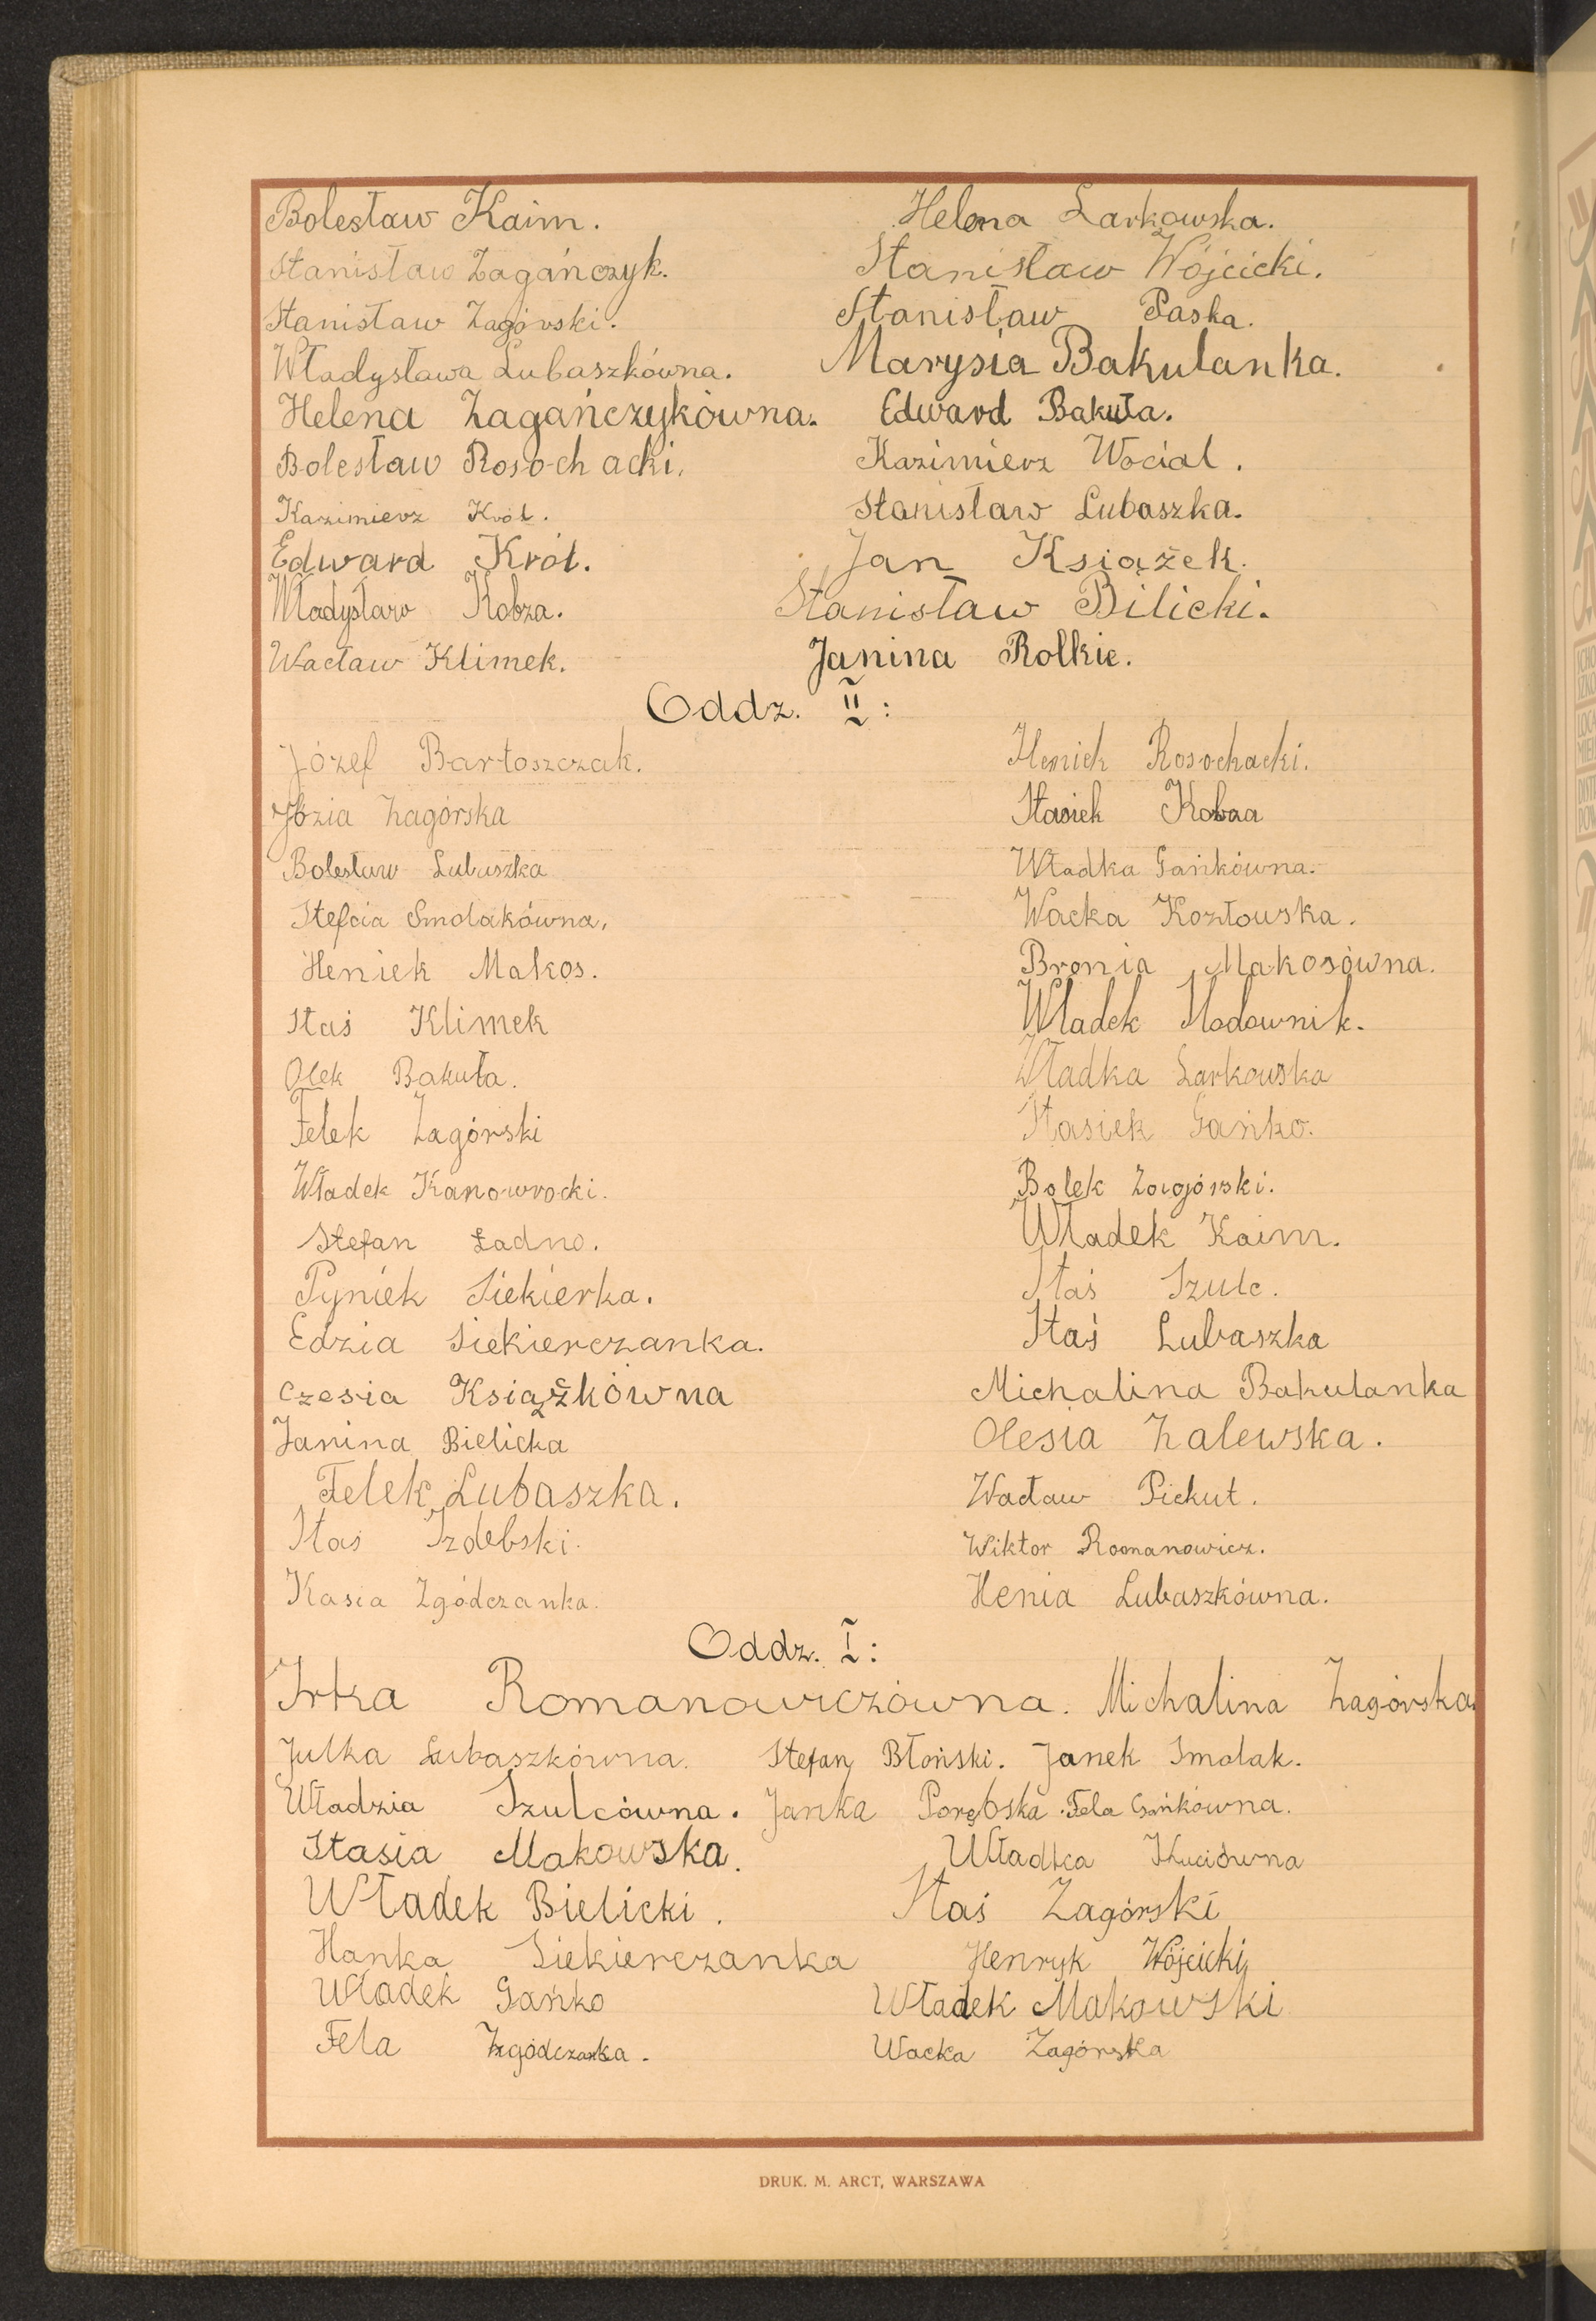 Bolesław Kaim. Helena Larkowska.
Stanisław Zagańczyk. Stanisław Wójcicki.
Stanisław Zagórski. Stanisław Paska.
Władysława Lubaszkówna. Marysia Bakulanka.
Helena Zagańczykówna. Edward Bakuła.
Bolesław Rosochacki. Kazimierz Wocial.
Kazimierz Król. Stanisław Lubaszka.
Edward Król. Jan Książek.
Władysław Kobza. Stanisław Bilicki.
Wacław Klimek. Janina Rolkie.
Oddz. II:
Józef Bartoszczak. Heniek Rosochacki.
Józia Zagórska Stasiek Kobza
Bolesław Lubaszka Władka Gańkówna.
Stefcia Smolakówna, Wacka Kozłowska.
Heniek Makos. Bronia Makosówna.
Staś Klimek Władek Modownik.
Olek Bakuła. Władka Larkowska
Felek Zagórski Stasiek Gańko.
Władek Kanowrocki. Bolek Zagórski.
Stefan Ładno. Władek Kaim.
Pyniek Siekierka. Staś Szulc.
Edzia Siekierczanka. Staś Lubaszka
Czesia Książkówna Michalina Bakulanka
Janina Bielicka Olesia Zalewska.
Felek Lubaszka. Wacław Piekut.
Staś Izdebski. Wiktor Romanowicz.
Kasia Zgódczanka. Henia Lubaszkówna.
Oddz. I:
Irka Romanowiczówna. Michalina Zagórska.
Julka Lubaszkówna. Stefan Błoński. Janek Smolak.
Władzia Szulcówna. Janka Porębska. Fela Gańkówna.
Stasia Makowska. Władka Kuciówna
Władek Bielicki. Staś Zagórski
Hanka Siekierczanka Henryk Wójcicki
Władek Gańko Władek Makowski
Fela Zgódczanka. Wacka Zagórska
DRUK. M. ARCT, WARSZAWA